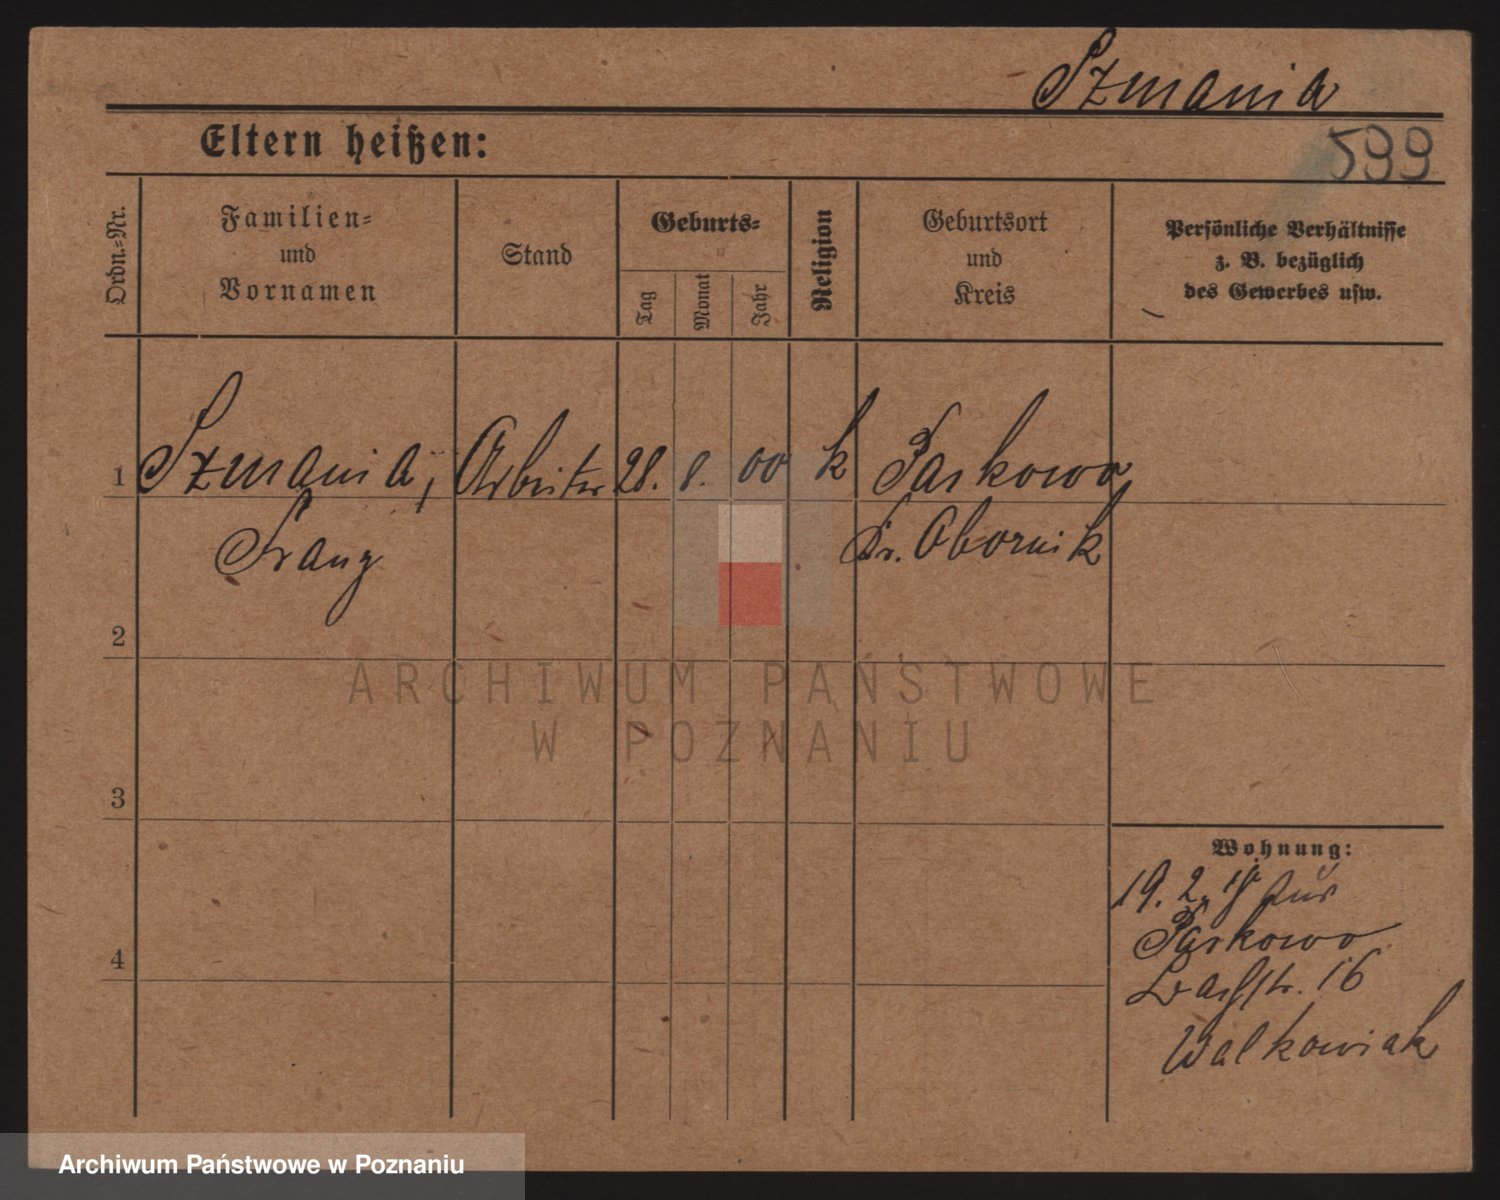 Szmania
599
Eltern heißen:
Ordn.-Nr.
Familien-
und
Vornamen
Stand
Geburts-
Tag
Monat
Jahr
Religion
Geburtsort
und
Kreis
Persönliche Verhältnisse
z. B. bezüglich
des Gewerbes usw.
1 Szmania, Arbeiter 28. 8. 00 k Parkowo
Franz Kr. Obornik
2
3
4
ARCHIWUM PAŃSTWOWE
W POZNANIU
Wohnung:
19. 2. 19
Parkowo
Bachstr. 16
Walkowiak
Archiwum Państwowe w Poznaniu